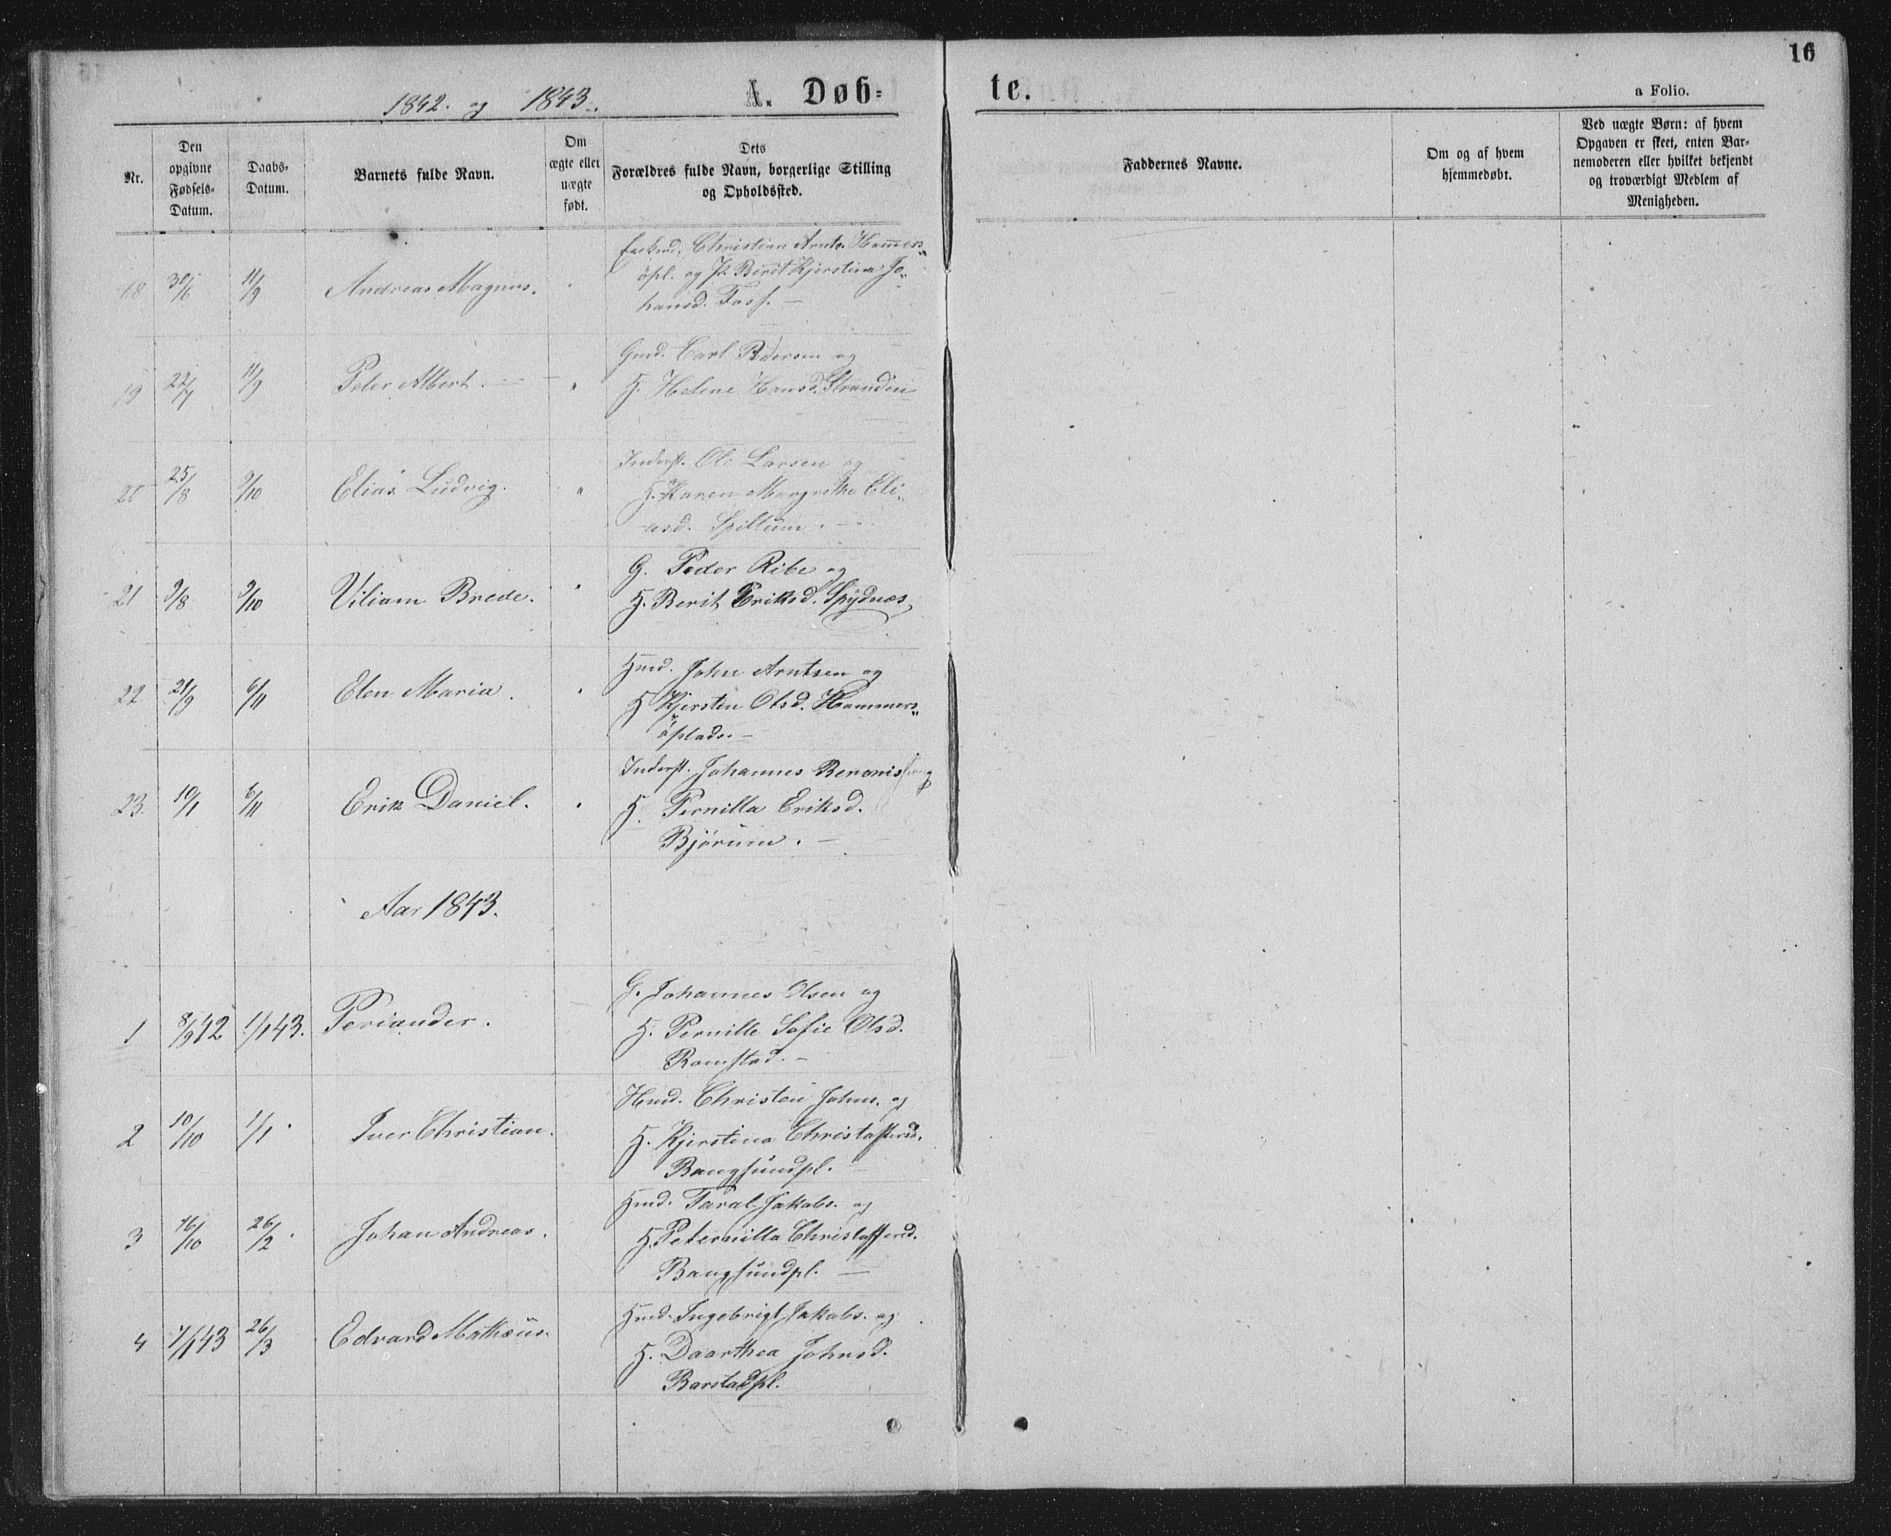 16
1842. og 1843. A. Døbte. a Folio.
Nr.
Den opgivne Fødsels-Datum.
Daabs-Datum.
Barnets fulde Navn.
Om ægte eller uægte født.
Dets Forældres fulde Navn, borgerlige Stilling og Opholdssted.
Faddernes Navne.
Om og af hvem hjemmedøbt.
Ved uægte Børn: af hvem Opgaven er skeet, enten Barnemoderen eller hvilket bekjendt og troværdigt Medlem af Menigheden.
18 30/6 11/9 Andreas Magnus.
Christian Arnts. Hammers-
øpl. og H. Berit Kjerstina Jo-
hansd. Foss. –
19 22/7 11/9 Peter Albert. "
Gmd. Carl Pedersen og
H. Helene Hansd. Stranden
20 25/8 9/10 Elias Ludvig. "
Inderst. Ole Larsen og
H. Karen Margrethe Eli-
asd. Spillum. –
21 9/8 9/10 Viliam Brede. "
G. Peder Ribe og
H. Berit Eriksd. Spydnæs
22 21/9 6/11 Elen Maria. "
Hmd. John Arntsen og
H. Kjersten Olsd. Hammers-
øplads. –
23. 10/1 6/11 Erik Daniel. "
Inderst. Johannes Beronis og
H. Pernilla Eriksd.
Bjørum. –
Aar 1843.
1 8/9 42 1/1 43. Periander.
G. Johannes Olsen og
H. Pernille Sofie Olsd.
Romstad. –
2 10/10 1/1. Iver Christian.
Hmd. Christen Johns. og
H. Kjerstina Christoffersd.
Bangsundpl. –
3 16/10 26/2. Johan Andreas.
Hmd. Taral Jakobs. og
H. Peternilla Christoffersd.
Bangsundpl. –
4 7/1 43 26/3 Edvard Mathæus.
Hmd. Ingebrigt Jakobs. og
H. Daarthea Johnsd.
Barstadpl.